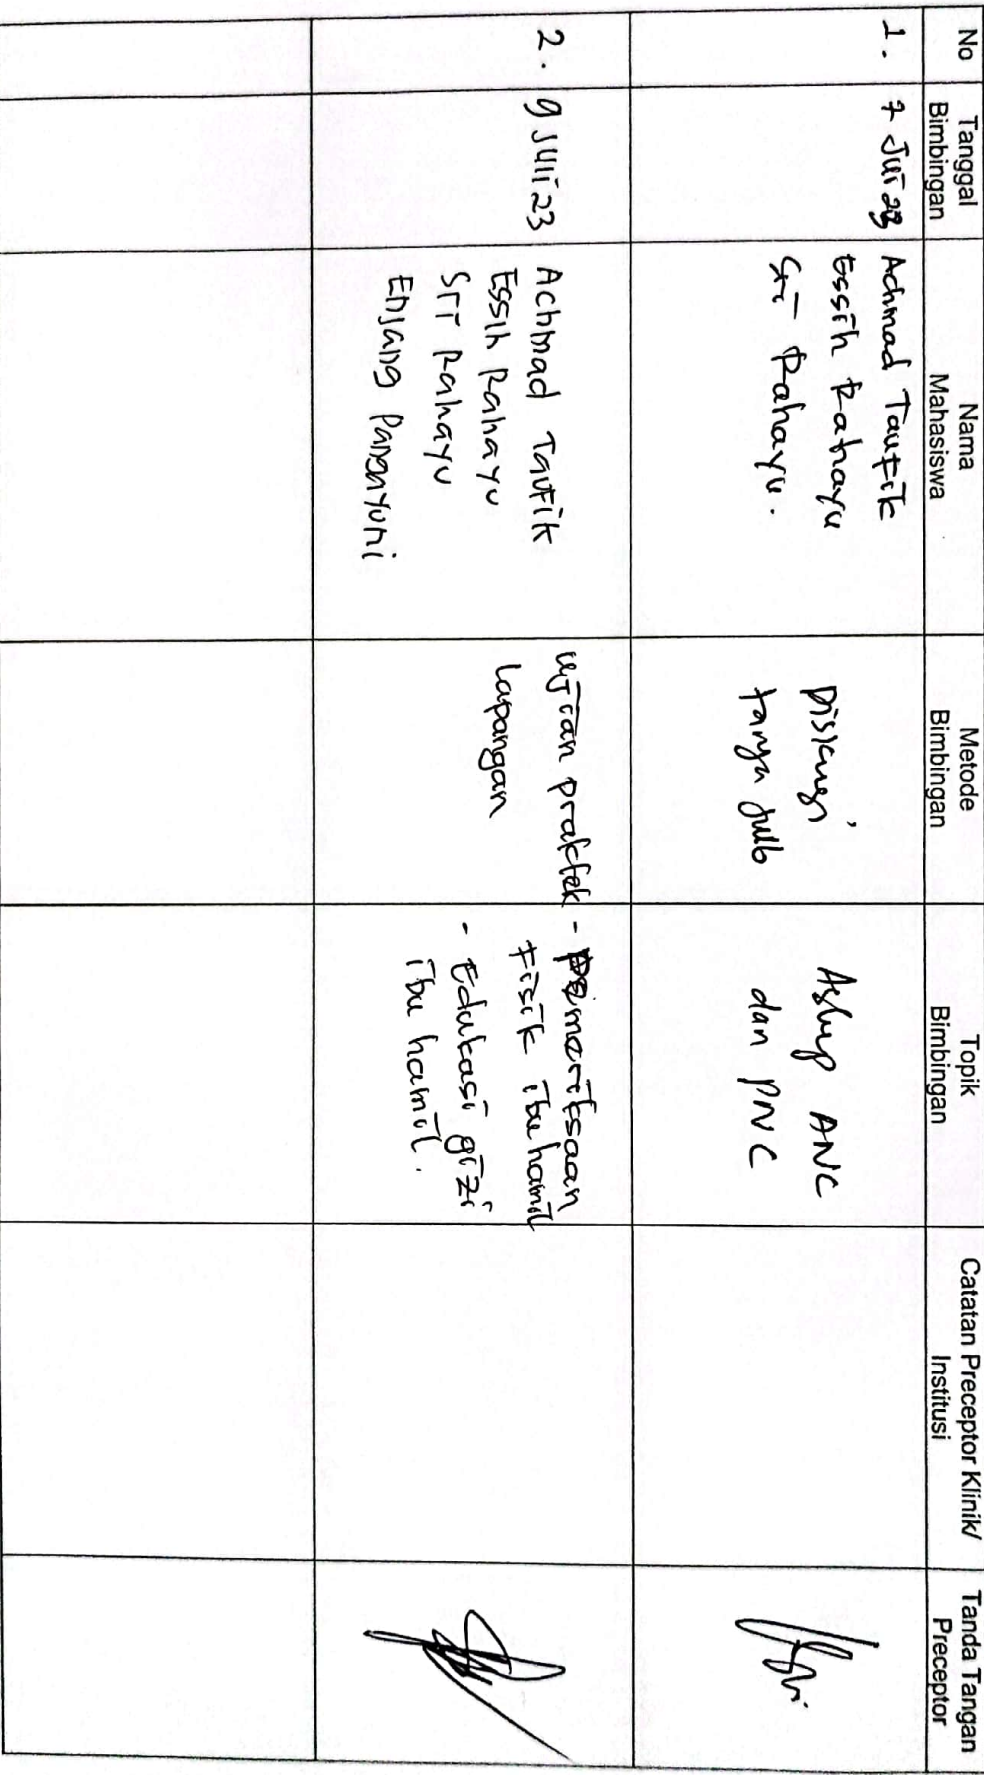 No
Tanggal
Bimbingan
Nama
Mahasiswa
Metode
Bimbingan
Topik
Bimbingan
Catatan Preceptor Klinik/
Institusi
Tanda Tangan
Preceptor
1.
7 Jui 23
Achmad Taufik
Essih Rahayu
Sri Rahayu.
Diskusi,
tanya jwb
Askep ANC
dan PNC
2.
9 Juli 23
Achmad Taufik
Essih Rahayu
Sri Rahayu
Enjang Pangayuni
Ujian praktek
Lapangan
- Pemeriksaan
Fisik ibu hamil
- Edukasi gizi
ibu hamil.